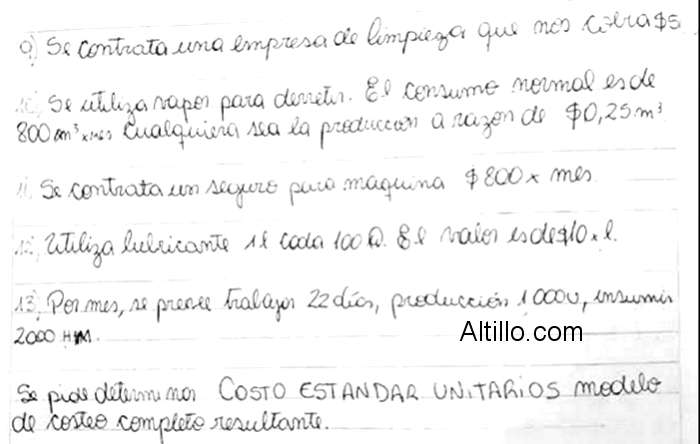 9) Se contrata una empresa de limpieza que nos cobra $5
10) Se utiliza vapor para derretir. El consumo normal es de
800 m³ x mes cualquiera sea la produccion a razon de $0,25 m³
11) Se contrata un seguro para maquina $800 x mes.
12) Utiliza lubricante 1l cada 100 El valor es de $10 x l.
13) Por mes, se preveé trabajar 22 días, producción 1000U, insumir
2000 HM.
Altillo.com
Se pide determinar COSTO ESTANDAR UNITARIOS modelo
de costeo completo resultante.